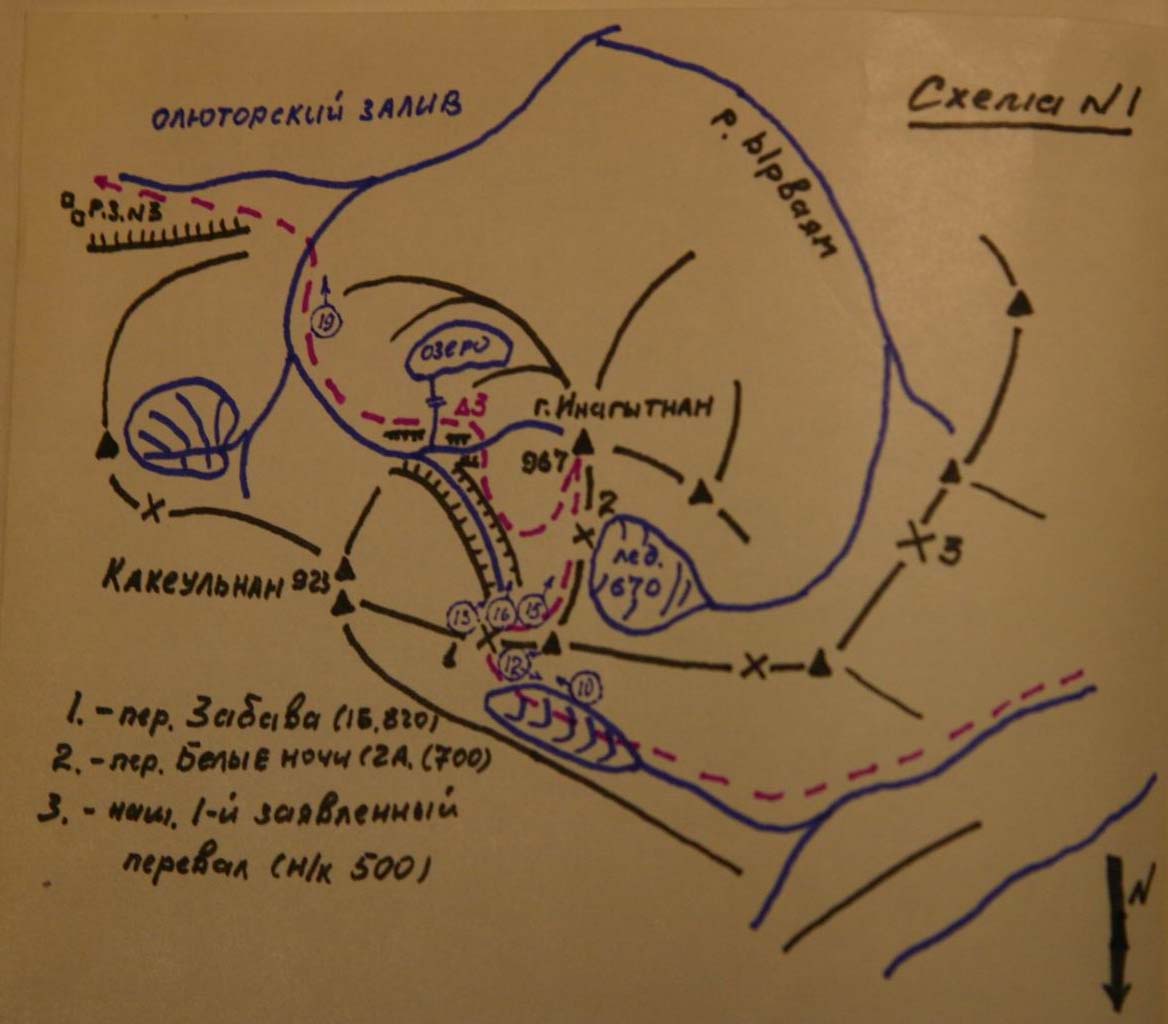 Схема N1
ОЛЮТОРСКИЙ ЗАЛИВ
р. Ырваям
Р.З. N3
19
ОЗЕРО
Δ3
г. Инагытнан
967
2
3
лед.
670
Каксульнан 923
13
16
15
1
12
10
1. - пер. Забава (1Б, 820)
2. - пер. БЕЛЫЕ НОЧИ (2А. (700)
3. - наш. 1-й заявленный
перевал (н/к 500)
N